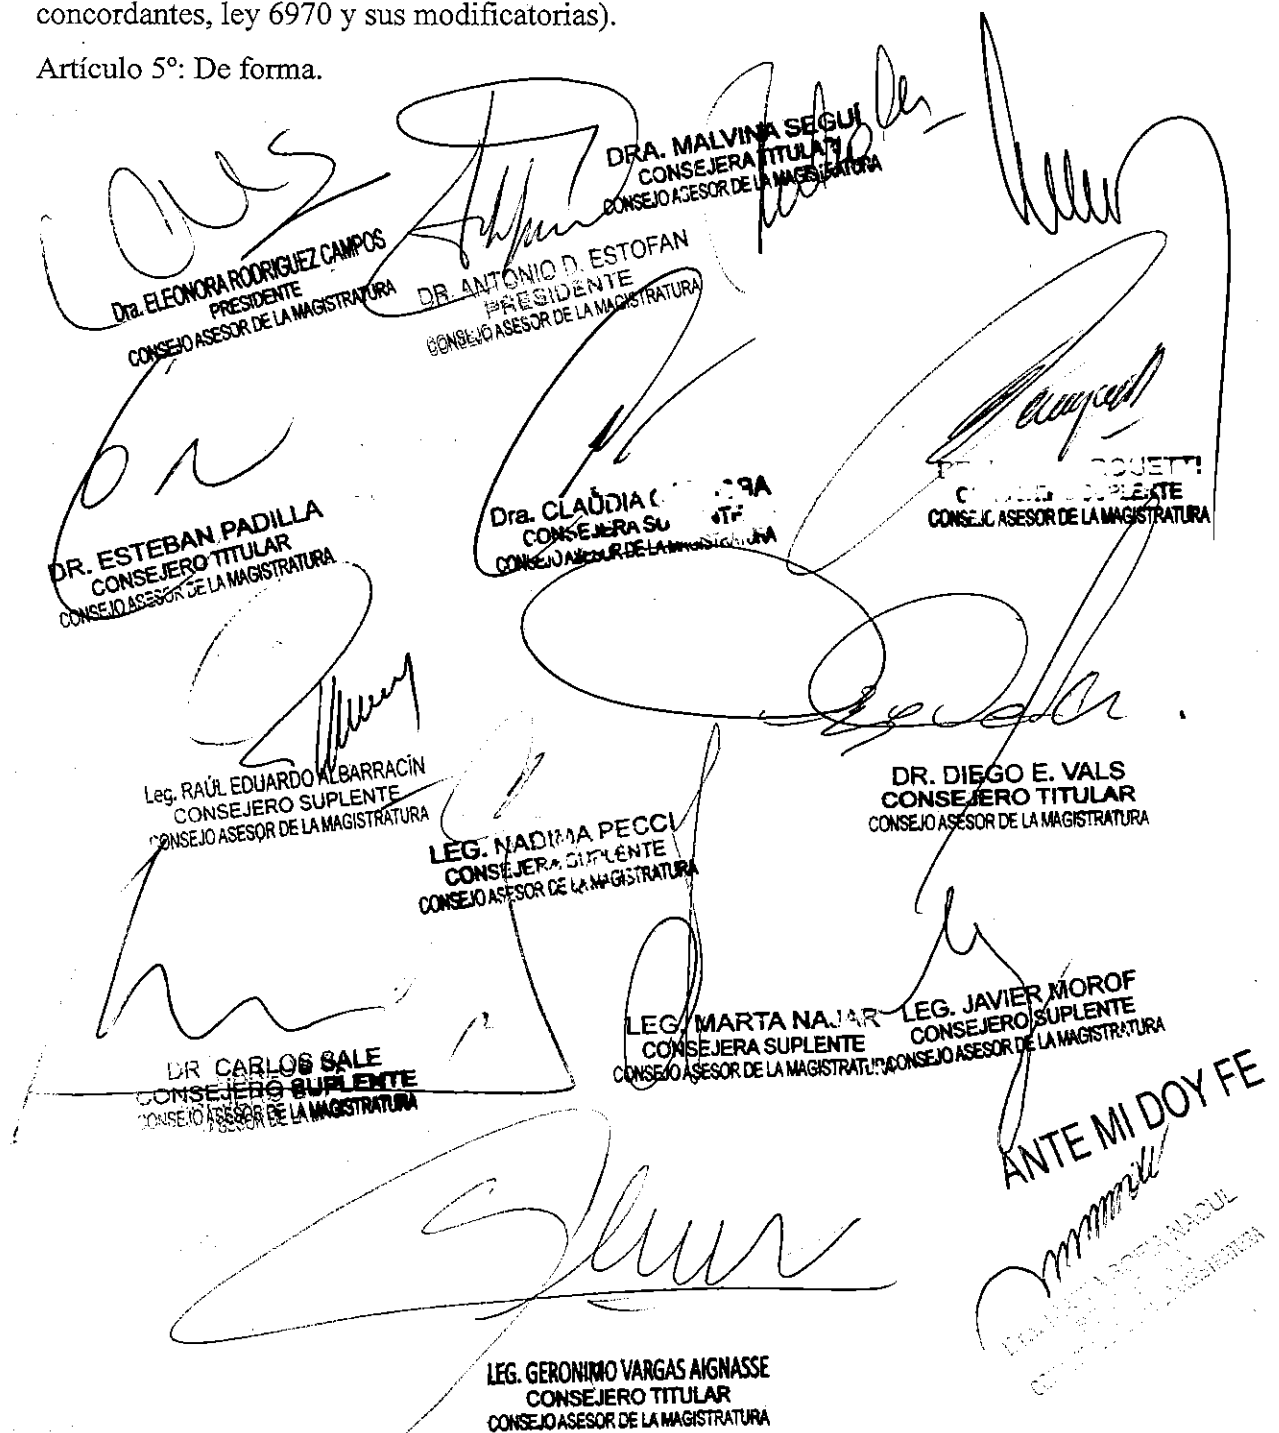 concordantes, ley 6970 y sus modificatorias).
Artículo 5º: De forma.
DRA. MALVINA SEGUÍ
CONSEJERA TITULAR
CONSEJO ASESOR DE LA MAGISTRATURA
Dra. ELEONORA RODRIGUEZ CAMPOS
PRESIDENTE
CONSEJO ASESOR DE LA MAGISTRATURA
DR. ANTONIO D. ESTOFAN
PRESIDENTE
CONSEJO ASESOR DE LA MAGISTRATURA
DR. ESTEBAN PADILLA
CONSEJERO TITULAR
CONSEJO ASESOR DE LA MAGISTRATURA
Dra. CLAUDIA
CONSEJERA
CONSEJO ASESOR DE LA MAGISTRATURA
SUPLENTE
CONSEJO ASESOR DE LA MAGISTRATURA
Leg. RAÚL EDUARDO ALBARRACÍN
CONSEJERO SUPLENTE
CONSEJO ASESOR DE LA MAGISTRATURA
LEG. NADIMA PECCI
CONSEJERA SUPLENTE
CONSEJO ASESOR DE LA MAGISTRATURA
DR. DIEGO E. VALS
CONSEJERO TITULAR
CONSEJO ASESOR DE LA MAGISTRATURA
DR CARLOS SALE
CONSEJERO SUPLENTE
CONSEJO ASESOR DE LA MAGISTRATURA
LEG. MARTA NAJAR
CONSEJERA SUPLENTE
CONSEJO ASESOR DE LA MAGISTRATURA
LEG. JAVIER MOROF
CONSEJERO SUPLENTE
CONSEJO ASESOR DE LA MAGISTRATURA
ANTE MI DOY FE
LEG. GERONIMO VARGAS AIGNASSE
CONSEJERO TITULAR
CONSEJO ASESOR DE LA MAGISTRATURA